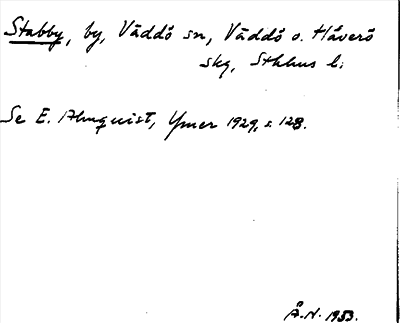 Stabby, by, Väddö sn, Väddö o. Häverö
skg, Sthlms l.
Se E. Almquist, Ymer 1929, s. 128.
Å.N. 1953.